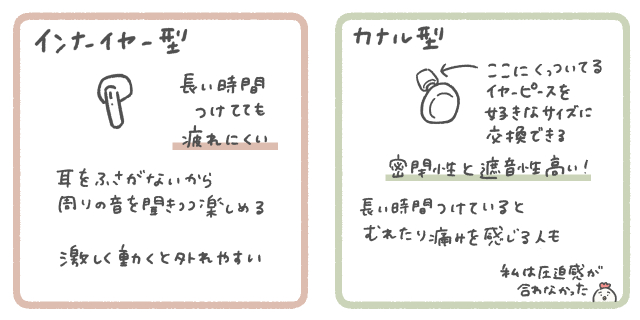 インナーイヤー型
長い時間
つけてても
疲れにくい
耳をふさがないから
周りの音を聞きつつ楽しめる
激しく動くと外れやすい
カナル型
ここにくっついてる
イヤーピースを
好きなサイズに
交換できる
密閉性と遮音性高い!
長い時間つけていると
むれたり痛みを感じる人も
私は圧迫感が
合わなかった